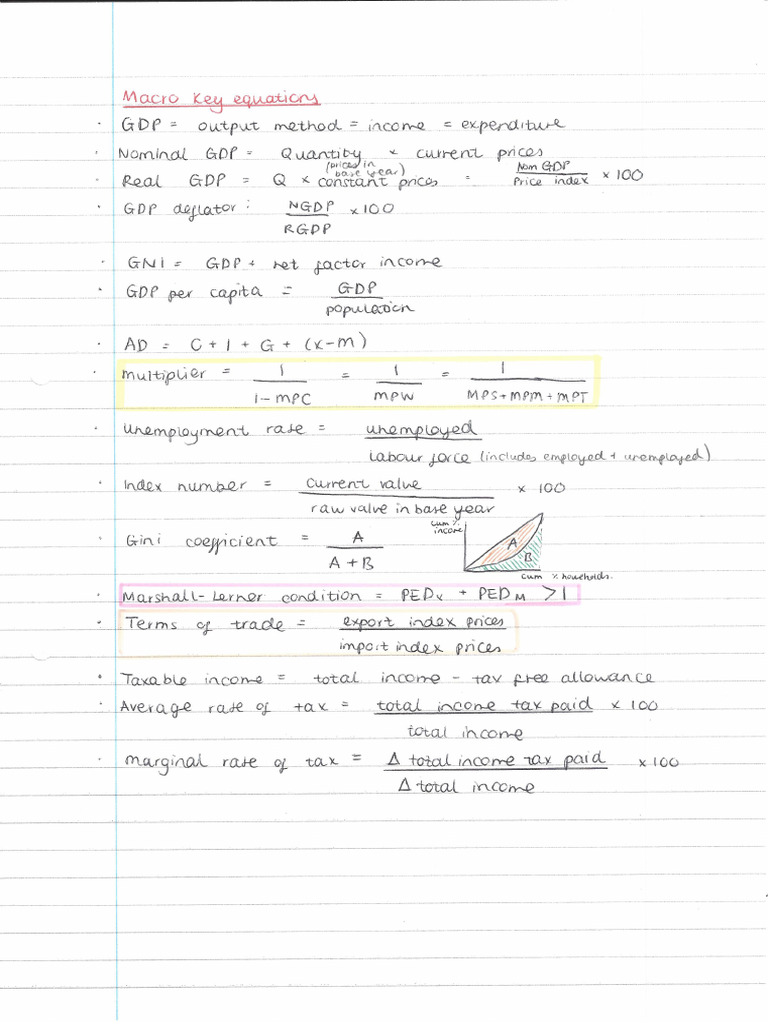 Macro Key equations
· GDP = output method = income = expenditure
· Nominal GDP = Quantity × current prices
(prices in base year)
· Real GDP = Q × constant prices = Nom GDP / Price index × 100
· GDP deflator: NGDP / RGDP × 100
· GNI = GDP + net factor income
· GDP per capita = GDP / population
· AD = C + I + G + (X-M)
· multiplier = 1 / 1-MPC = 1 / MPW = 1 / MPS+MPM+MPT
· Unemployment rate = unemployed / labour force (includes employed + unemployed)
· Index number = current value / raw value in base year × 100
· Gini coefficient = A / A+B
cum % income
A
B
cum % households.
· Marshall-Lerner condition = PEDX + PEDM > 1
· Terms of trade = export index prices / import index prices
· Taxable income = total income - tax free allowance
· Average rate of tax = total income tax paid / total income × 100
· Marginal rate of tax = Δ total income tax paid / Δ total income × 100